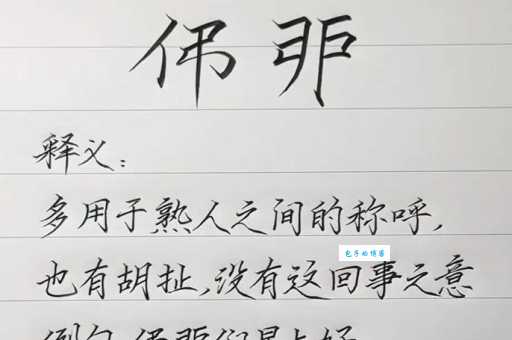 伄戼
释义：
多用于熟人之间的称呼，
包子的博客
也有胡扯，没有这回事之意
例句